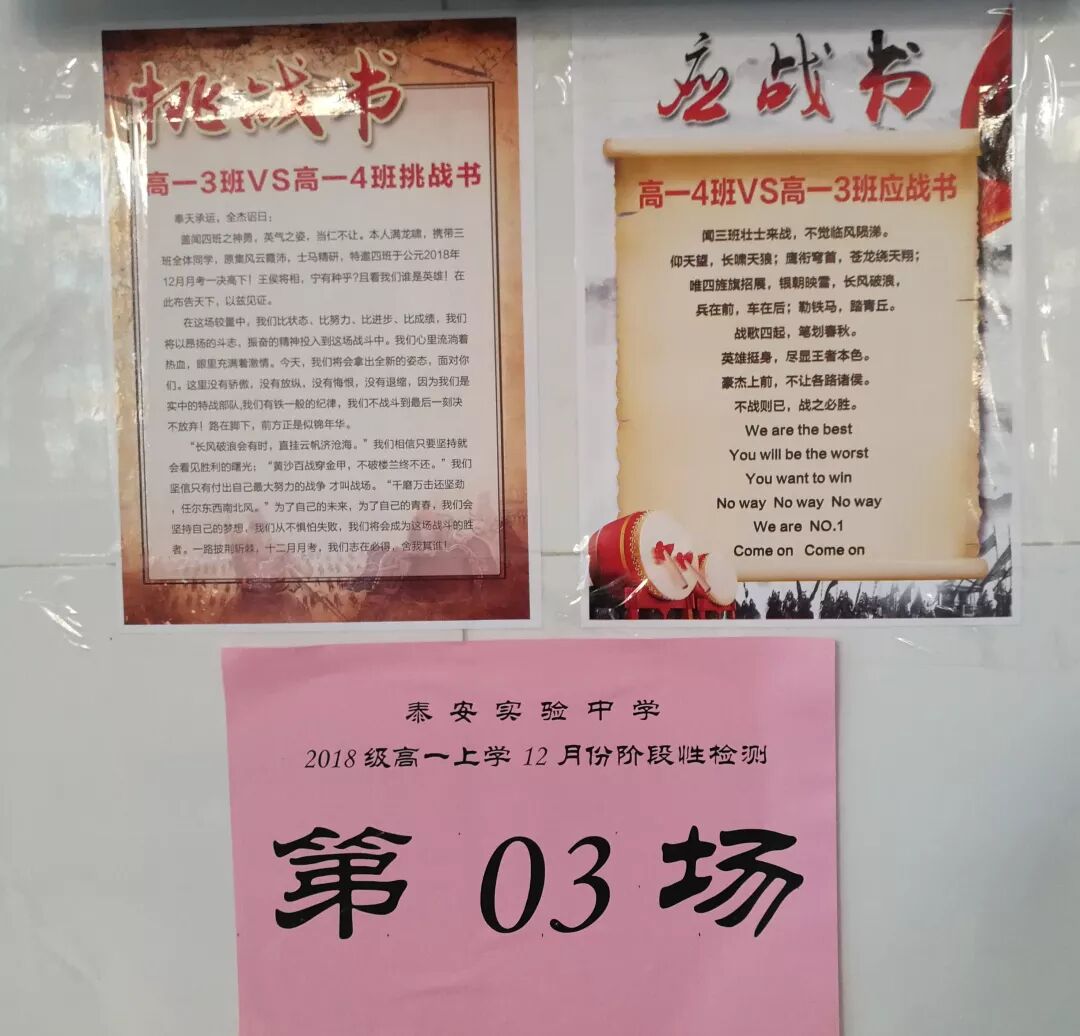 挑战书
高一3班VS高一4班挑战书
奉天承运，全杰诏曰：
盖闻四班之神勇，英气之姿，当仁不让。本人满龙啸，携带三
班全体同学，原集风云霞沛，士马精研，特邀四班于公元2018年
12月月考一决高下！王侯将相，宁有种乎?且看我们谁是英雄！在
此布告天下，以兹见证。
在这场较量中，我们比状态、比努力、比进步、比成绩，我们
将以昂扬的斗志，振奋的精神投入到这场战斗中。我们心里流淌着
热血，眼里充满着激情。今天，我们将会拿出全新的姿态，面对你
们。这里没有骄傲，没有放纵，没有悔恨，没有退缩，因为我们是
实中的特战部队,我们有铁一般的纪律，我们不战斗到最后一刻决
不放弃！路在脚下，前方正是似锦年华。
“长风破浪会有时，直挂云帆济沧海。”我们相信只要坚持就
会看见胜利的曙光；“黄沙百战穿金甲，不破楼兰终不还。”我们
坚信只有付出自己最大努力的战争 才叫战场。“千磨万击还坚劲
，任尔东西南北风。”为了自己的未来，为了自己的青春，我们会
坚持自己的梦想，我们从不惧怕失败，我们将会成为这场战斗的胜
者。一路披荆斩棘，十二月月考，我们志在必得，舍我其谁！
应战书
高一4班VS高一3班应战书
闻三班壮士来战，不觉临风陨涕。
仰天望，长啸天狼；鹰衔穹首，苍龙绕天翔；
唯四旌旗招展，银朝映雪，长风破浪，
兵在前，车在后；勒铁马，踏青丘。
战歌四起，笔划春秋。
英雄挺身，尽显王者本色。
豪杰上前，不让各路诸侯。
不战则已，战之必胜。
We are the best
You will be the worst
You want to win
No way No way No way
We are NO.1
Come on Come on
泰安实验中学
2018级高一上学12月份阶段性检测
第 03 场